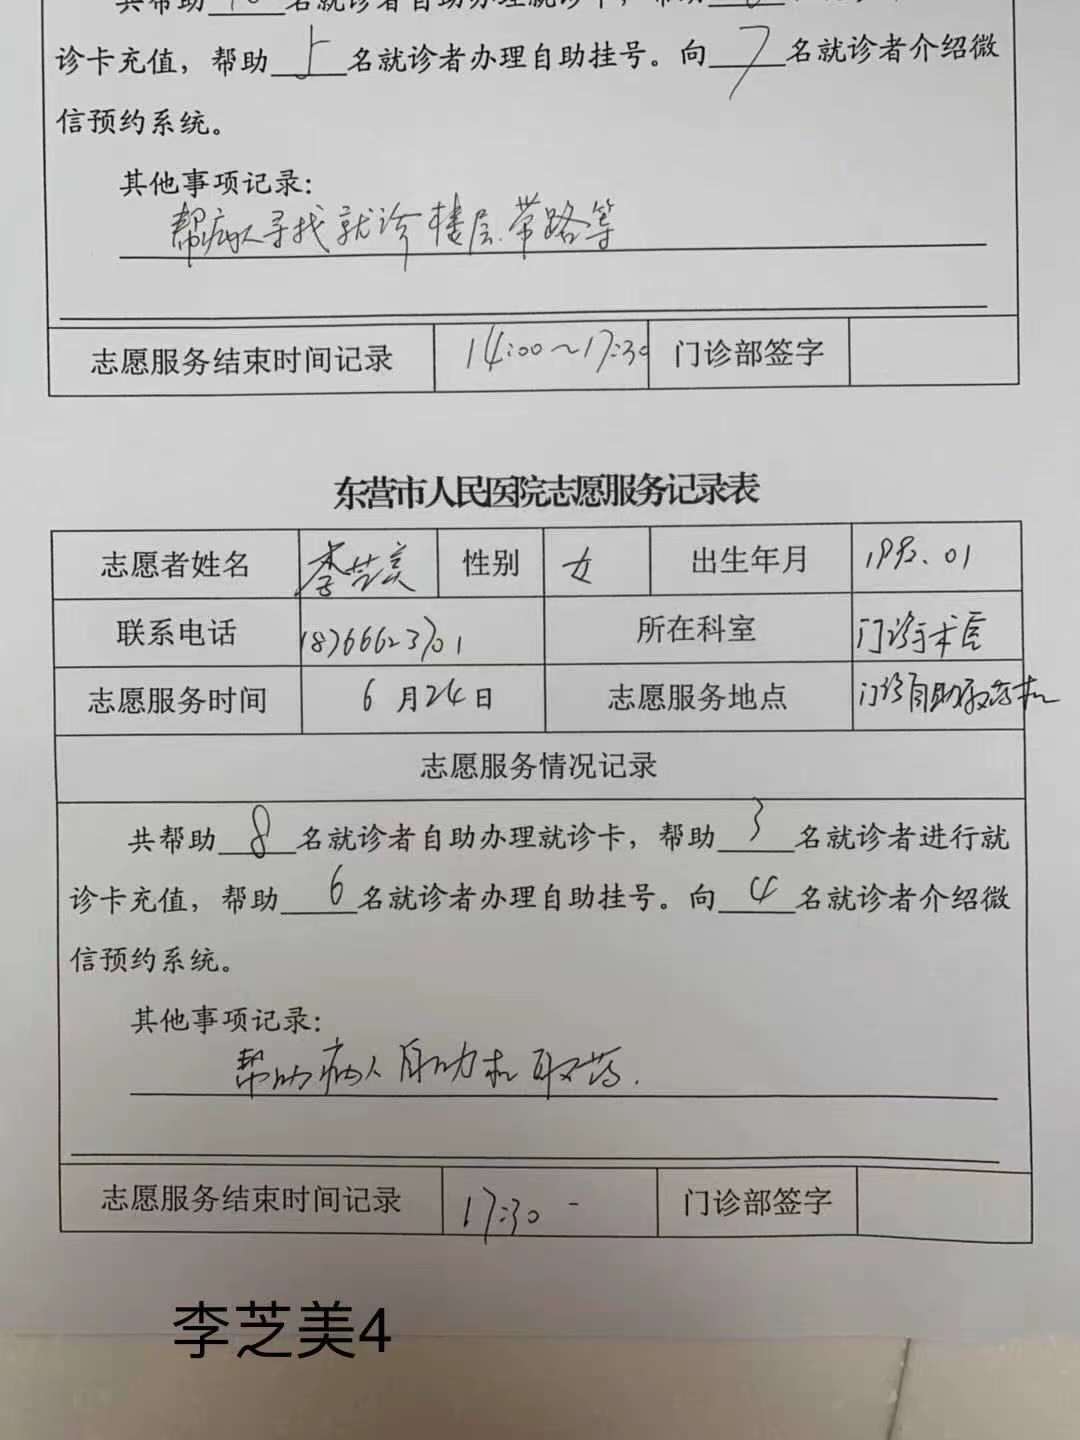 共帮助 10 名就诊者自助办理就诊卡，帮助
诊卡充值，帮助 5 名就诊者办理自助挂号。向 7 名就诊者介绍微
信预约系统。
其他事项记录：
帮病人寻找就诊楼层.带路等
志愿服务结束时间记录 14:00～17:30 门诊部签字
东营市人民医院志愿服务记录表
志愿者姓名 李芝美 性别 女 出生年月 1992.01
联系电话 18766623701 所在科室 门诊手术室
志愿服务时间 6月24日 志愿服务地点 门诊自助取药机
志愿服务情况记录
共帮助 8 名就诊者自助办理就诊卡，帮助 3 名就诊者进行就
诊卡充值，帮助 6 名就诊者办理自助挂号。向 4 名就诊者介绍微
信预约系统。
其他事项记录：
帮助病人自助机取药.
志愿服务结束时间记录 17:30 - 门诊部签字
李芝美4